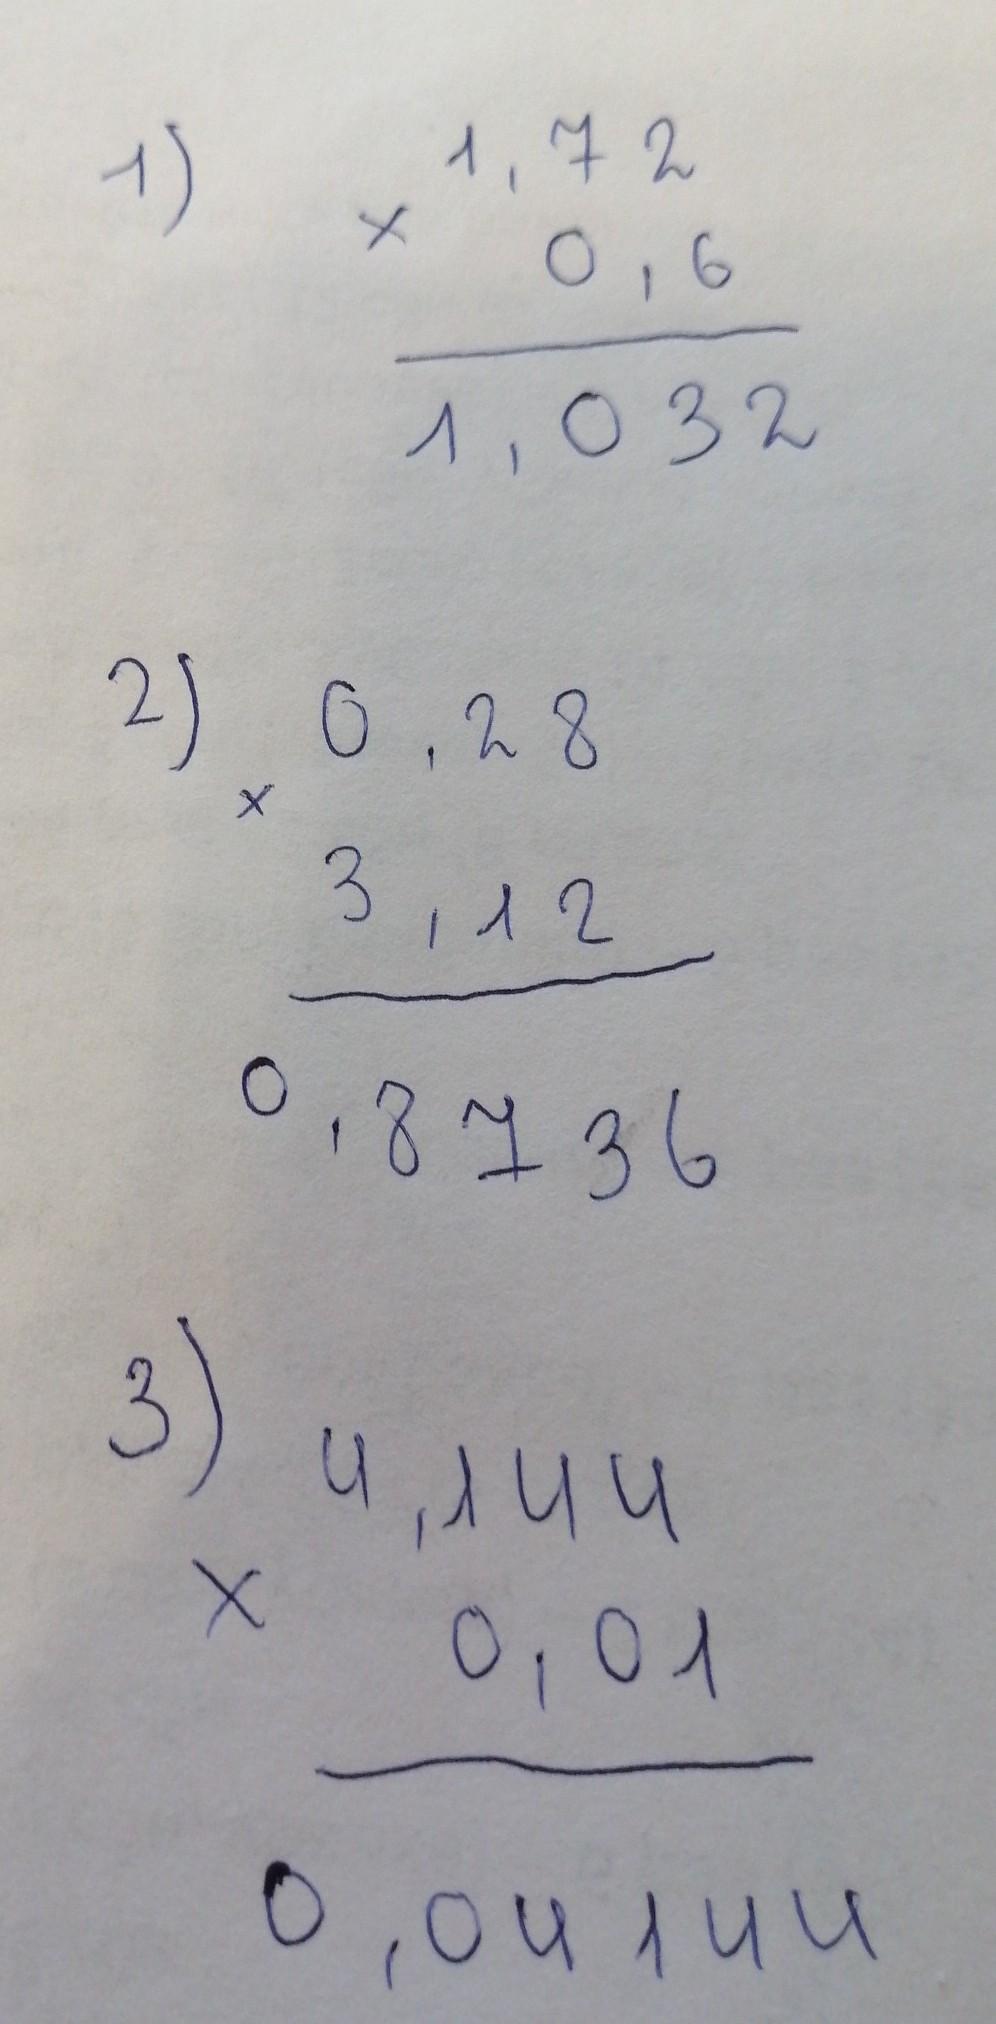 1) 1,72
× 0,6
1,032
2) 0,28
×
3,12
0,8736
3) 4,144
× 0,01
0,04144